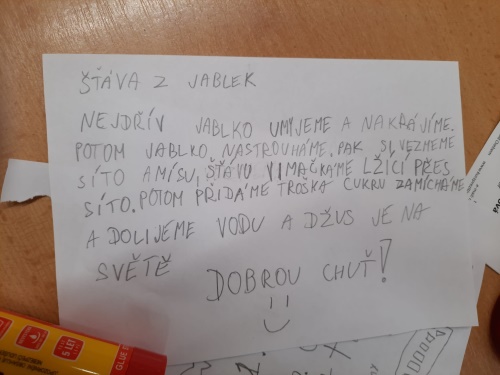 ŠŤÁVA Z JABLEK
NEJDŘÍV JABLKO UMYJEME A NAKRÁJÍME.
POTOM JABLKO, NASTROUHÁME, PAK SI VEZMEME
SÍTO A MÍSU, ŠŤÁVU VIMAČKÁME LŽÍCÍ PŘES
SÍTO. POTOM PŘIDÁME TROŠKA CUKRU ZAMÍCHÁME
A DOLIJEME VODU A DŽUS JE NA
SVĚTĚ
DOBROU CHUŤ!
5 LET
GLUE